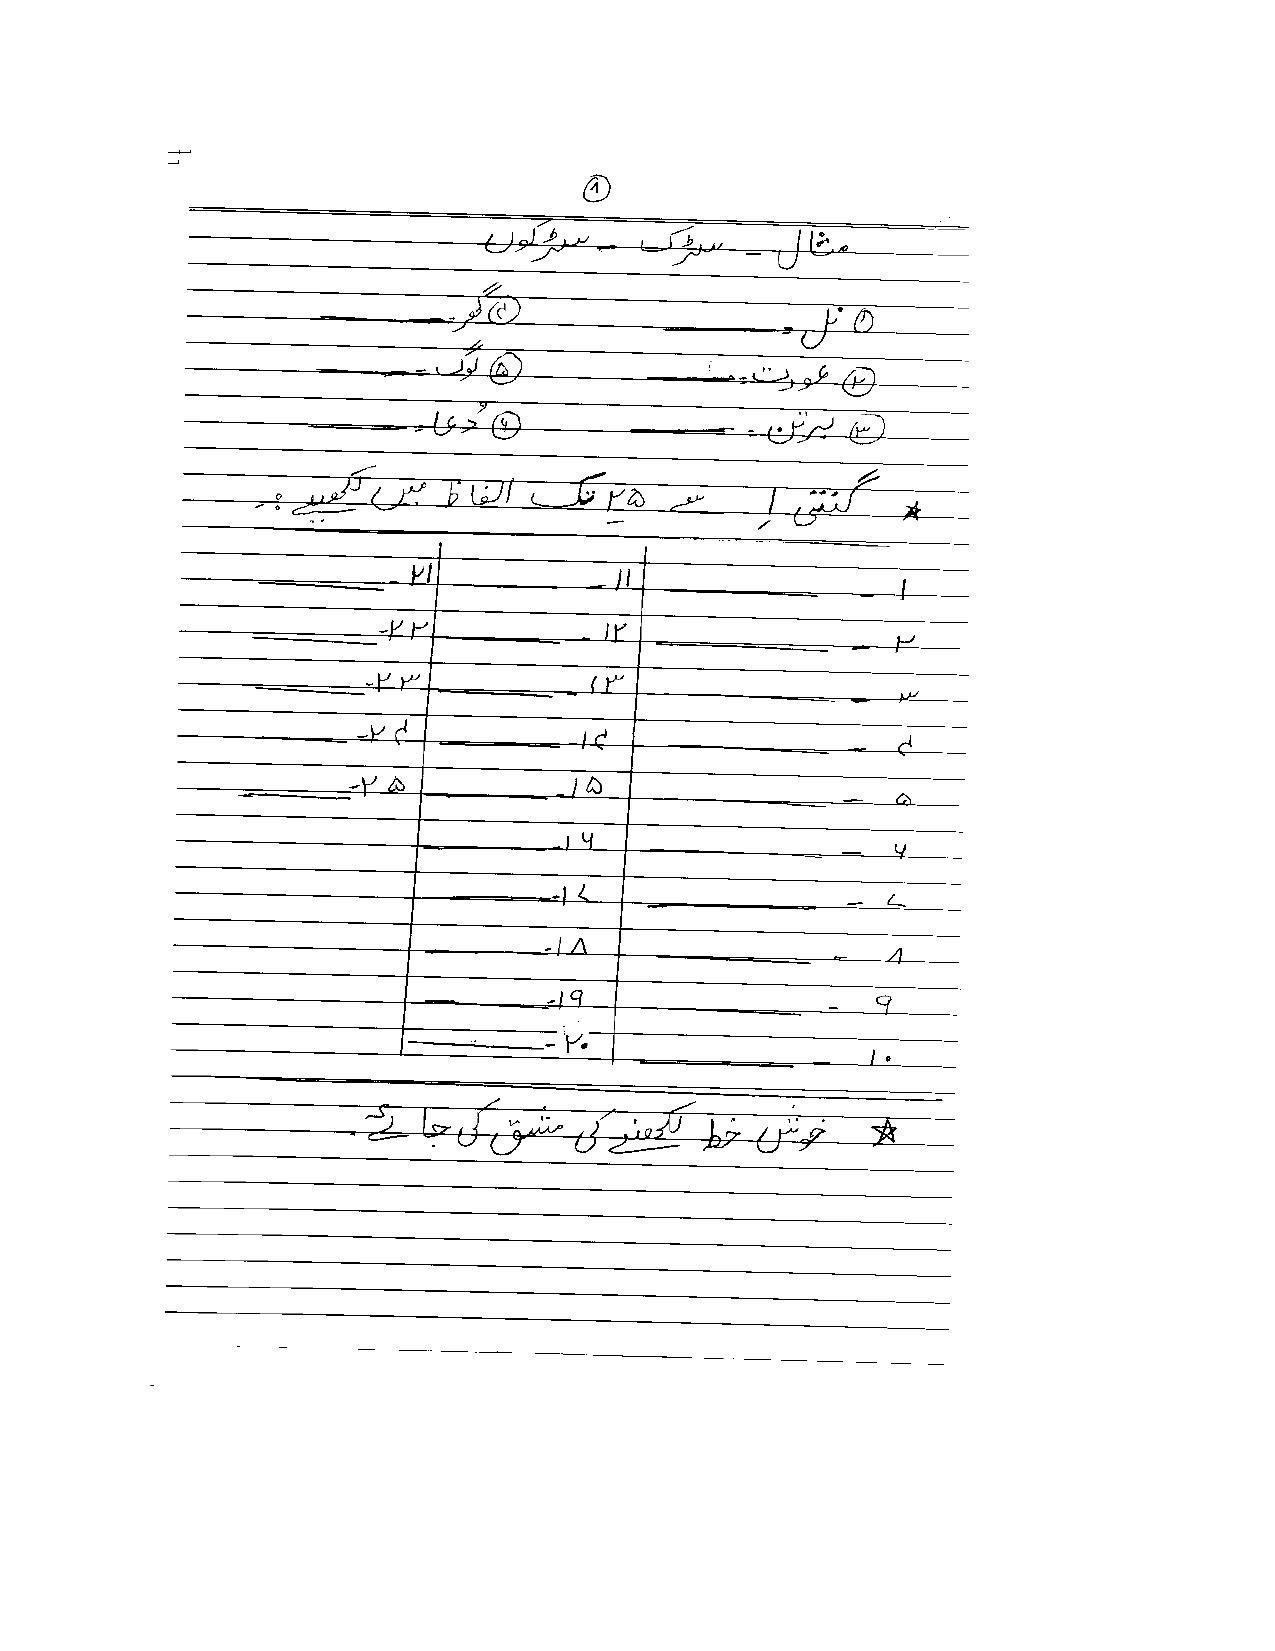 ۸
مثال - سڑک - سڑکوں
۱ نل - ۴ گھر -
۲ عورت - ۵ لوگ -
۳ برتن - ۶ دُعا -
★ گنتی ۱ سے ۲۵ تک الفاظ میں لکھیے :-
۱ - ۱۱ - ۲۱ -
۲ - ۱۲ - ۲۲ -
۳ - ۱۳ - ۲۳ -
۴ - ۱۴ - ۲۴ -
۵ - ۱۵ - ۲۵ -
۶ - ۱۶ -
۷ - ۱۷ -
۸ - ۱۸ -
۹ - ۱۹ -
۱۰ - ۲۰ -
★ خوش خط لکھنے کی مشق کی جائے .